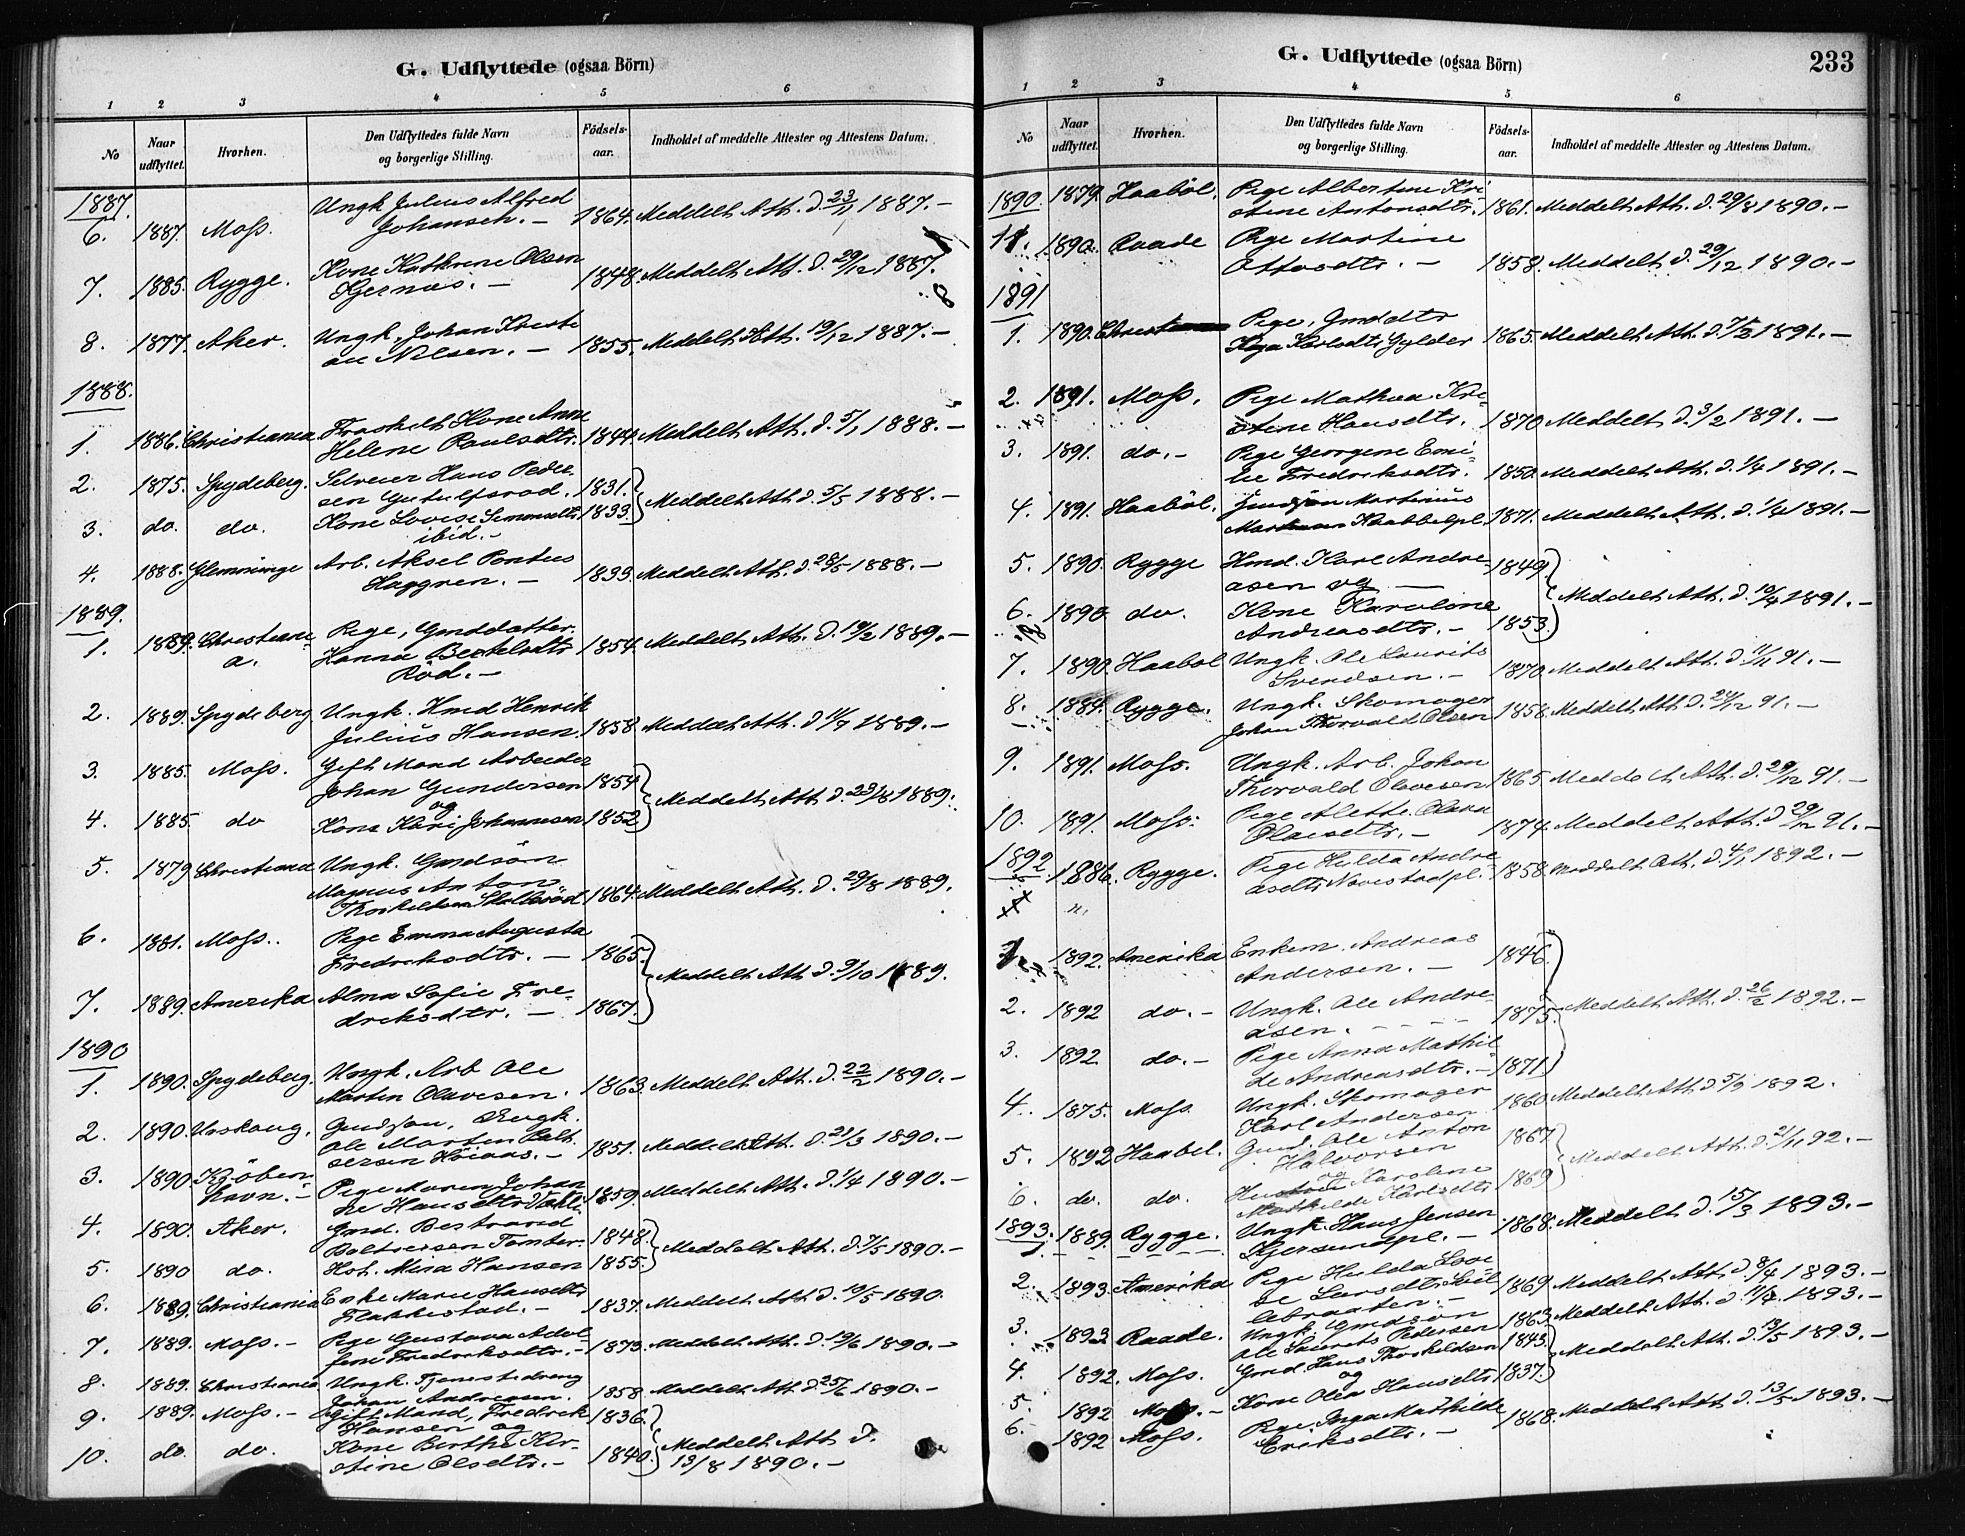 G. Udflyttede (ogsaa Börn)
1 2 3 4 5 6
No
Naar udflyttet.
Hvorhen.
Den Udflyttedes fulde Navn og borgerlige Stilling.
Födsels-aar.
Indholdet af meddelte Attester og Attestens Datum.
1887.
6. 1887. Moss. Ungk. Julius Alfred
Johansen. - 1864. Meddelt Att. d. 23/11 1887. -
7. 1885. Rygge. Kone Kathrine Olsen
Kjernæs. - 1848. Meddelt Att. d. 29/12 1887.
8. 1877. Aker. Ungk. Johan Kristi
an Nilsen. - 1855. Meddelt Att. 19/12 1887. -
1888.
1. 1886. Christiania Fraskilt Kone Anne
Helene Paulsdtr. 1844. Meddelt Att. d. 5/1 1888. -
2. 1875. Spydeberg. Selveier Hans Peder
sen Gutulfsrød. 1831. Meddelt Att. d. 5/5 1888. -
3. do. do. Kone Lovise Simonsdtr 1833.
ibid. -
4. 1888. Glemminge Arb. Aksel Pontus
Haggren. - 1833. Meddelt Att. d. 28/5 1888. -
1889.
1. 1889. Christiani- Pige, Gmddatter
a. Hanna Bertelsdtr 1854. Meddelt Att. d. 14/2 1889. -
Röd. -
2. 1889. Spydeberg Ungk. Hmd Henrik
Julius Hansen. 1858. Meddelt Att. d. 11/7 1889. -
3. 1885. Moss. Gift Mand Arbeider
Johan Gundersen 1854
og Meddelt Att. d. 23/8 1889.
4. 1885. do Kone Kari Johannesen 1852
5. 1879 Christiania Ungk. Gmdsön
Magnus Anton
Thorkildsen 1864. Meddelt Att. d. 29/8 1889.
6. 1881. Moss. Pige Emma Augusta
Fredriksdtr. - 1865. Meddelt Att. d. 9/10 1889.
7. 1889. Amerika Alma Sofie Fre-
driksdtr. - 1867.
1890
1. 1890. Spydeberg. Ungk. Arb Ole
Martin Olavesen. 1863. Meddelt Att. d. 22/2 1890. -
2. 1890. Urskoug. Gmdsøn, Ungk.
Ole Martin Balt
sersen 1851. Meddelt Att. d. 21/3 1890. -
3. 1890 Kjöben- Pige Maren Johan
havn. - ne Hansdtr 1859. Meddelt Att. d. 1/4 1890. -
4. 1890. Aker. Gmd. Bertrand
Baltsersen Tomter. 1848. Meddelt Att. d. 7/5 1890. -
5. 1890 do. Hst. Mina Hansen 1855.
6. 1889. Christiania Enke Marie Hansdtr
Flakkestad. - 1837. Meddelt Att d. 19/5 1890.
7. 1889. Moss. - Pige Gustava Adol
fine Fredriksdtr. - 1873. Meddelt Att. d. 19/6 1890. -
8. 1889. Christiania Ungk. Tjenestedreng
Johan Andersen. 1858. Meddelt Att. d. 25/6 1890. -
9. 1889. Moss. - Gift Mand, Fredrik 1836.
Hansen og
10. do. do. Kone Berthe Kir- Meddelt Att d.
stine Olsdtr. - 1840. 13/8 1890. -
G. Udflyttede (ogsaa Börn) 233
1 2 3 4 5 6
No
Naar udflyttet.
Hvorhen.
Den Udflyttedes fulde Navn og borgerlige Stilling.
Födsels-aar.
Indholdet af meddelte Attester og Attestens Datum.
1890. 1879. Haaböl. Pige Albertine Kri
stine Antonsdtr. 1861. Meddelt Att. d. 29/8 1890. -
11. 1890. Raade Pige Martine
Ottosdtr. - 1858. Meddelt d. 29/12 1890. -
1891
1. 1890. Pige, Gmddtr
Karlsdtr Gylder 1865. Meddelt Att. d. 7/2 1891. -
2. 1891. Moss. Pige Mathea Kri-
stine Hansdtr. 1870. Meddelt d. 3/2 1891. -
3. 1891. do. - Pige Georgine Emi-
lie Fredriksdtr. 1850. Meddelt Att. d. 1/4 1891. -
4. 1891. Haaböl. Gmdsøn Martinius
1871. Meddelt Att. d. 1/4 1891. -
5. 1890. Rygge Hmd. Karl Andre- 1849
asen og - Meddelt Att. d. 10/4 1891. -
6. 1890. do. Kone Karoline
Andreasdtr. - 1853.
7. 1890. Haabol Ungk. Ole Laurits
Svendsen. - 1870. Meddelt Att. d. 11/11 91. -
8. 1884. Rygge. Ungk. Skomager
Johan Thorvald Olsen 1858. Meddelt Att. d. 24/12 91. -
9. 1891. Moss. Ungk. Arb. Johan
Thorvald Olavesen 1865. Meddelt Att. d. 29/12 91. -
10. 1891. Moss. Pige Alette Olava
Olaisdtr. - 1874. Meddelt Att. d. 29/12 91. -
1892
1886. Rygge. Pige Hulda Andre
asdtr 1858. Meddelt Att. d. 4/1 1892. -
1. 1892. Amerika Enkem. Andreas 1846.
Andersen. -
2. 1892 do. - Ungk. Ole Andre- 1875. Meddelt Att. d. 26/2 1892. -
asen. -
3. 1892 do. - Pige Anna Mathil
de Andreasdtr. - 1871.
4. 1875. Moss. Ungk. Skomager 1860. Meddelt Att. d. 5/9 1892.
Karl Andersen
5. 1892 Haabel. Gmd. Ole Anton 1867.
Halvorsen Meddelt Att. d. 21/11 92. -
og
6. do. do. Hustru Karoline 1869
Mathilde Karlsdtr
1893.
1. 1889. Rygge. Ungk. Hans Jensen 1868. Meddelt d. 15/3 1893. -
Kjersundpl. -
2. 1893. Amerika Pige Hulda Lovi
se Larsdtr 1869. Meddelt Att. d. 8/4 1893. -
3. 1893 Raade. Ungk. Gmdsön 1863. Meddelt Att. d. 11/4 1893. -
Ole Laurits Pedersen
4. 1892. Moss. Gmd. Hans Thorkildsen 1843. Meddelt Att. d. 13/5 1893. -
og
5. 1892 Moss. - Kone Olea Hansdtr 1837.
6. 1892 Moss. Pige Inga Mathilde 1868. Meddelt Att d. 13/5 1893. -
Eriksdtr. -